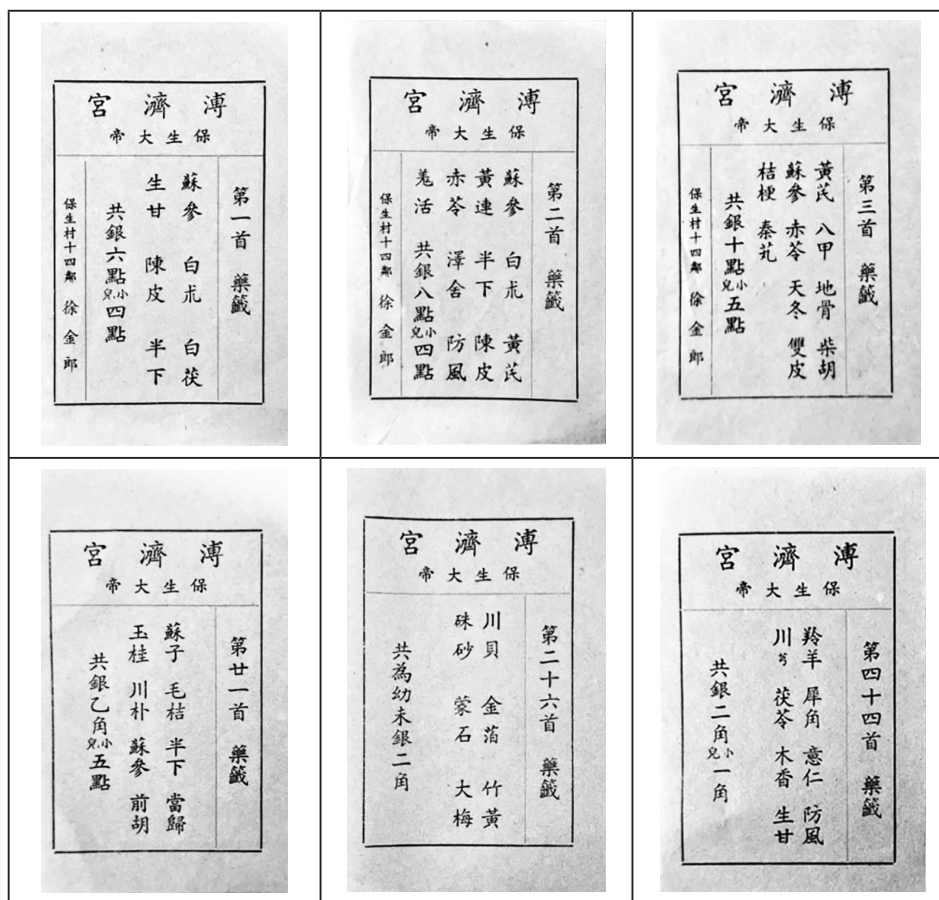 溥濟宮
保生大帝
第一首 藥籤
蘇參 白朮 白茯
生甘 陳皮 半下
共銀六點小兒四點
保生村十四鄰 徐金郎
溥濟宮
保生大帝
第二首 藥籤
蘇參 白朮 黃芪
黃連 半下 陳皮
赤苓 澤舍 防風
羗活 共銀八點小兒四點
保生村十四鄰 徐金郎
溥濟宮
保生大帝
第三首 藥籤
黃芪 八甲 地骨 柴胡
蘇參 赤苓 天冬 雙皮
桔梗 秦艽
共銀十點小兒五點
保生村十四鄰 徐金郎
溥濟宮
保生大帝
第廿一首 藥籤
蘇子 毛桔 半下 當歸
玉桂 川朴 蘇參 前胡
共銀乙角小兒五點
溥濟宮
保生大帝
第二十六首 藥籤
川貝 金箔 竹黃
硃砂 蒙石 大梅
共為幼末銀二角
溥濟宮
保生大帝
第四十四首 藥籤
羚羊 犀角 意仁 防風
川芎 茯苓 木香 生甘
共銀二角小兒一角